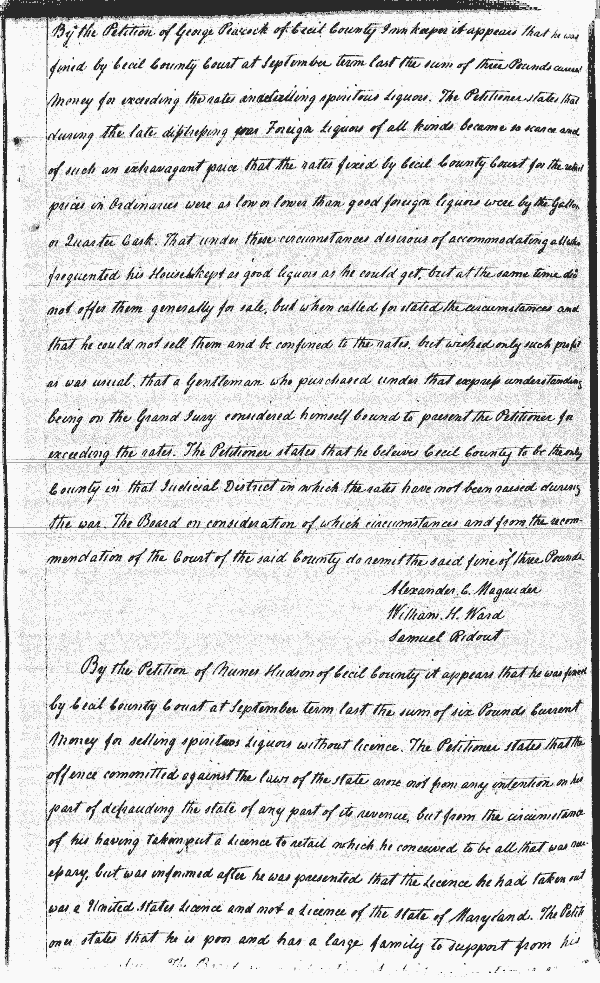 By the Petition of George Peacock of Cecil County Innkeeper it appears that he was
fined by Cecil County Court at September term last the sum of three Pounds current
Money for exceeding the rates and selling spiritous Liquors. The Petitioner states that
during the late distressing war Foreign Liquors of all kinds became so scarce and
of such an extravagant price that the rates fixed by Cecil County Court for the retail
prices in Ordinaries were as low or lower than good foreign liquors were by the Gallon
or Quarter Cask. That under these circumstances desirous of accommodating all who
frequented his House kept as good liquors as he could get, but at the same time did
not offer them generally for sale, but when called for stated the circumstances and
that he could not sell them and be confined to the rates, but wished only such profit
as was usual, that a Gentleman who purchased under that express understanding
being on the Grand Jury considered himself bound to present the Petitioner for
exceeding the rates. The Petitioner states that he believes Cecil County to be the only
County in that Judicial District in which the rates have not been raised during
the war. The Board on consideration of which circumstances and from the recom-
mendation of the Court of the said County do remit the said fine of three Pounds
Alexander C. Magruder
William. H. Ward
Samuel Ridout
By the Petition of Hudson of Cecil County it appears that he was fined
by Cecil County Court at September term last the sum of six Pounds Current
Money for selling spiritous Liquors without licence. The Petitioner states that the
offence committed against the laws of the state arose not from any intention on his
part of defrauding the state of any part of its revenue, but from the circumstance
of his having taken out a Licence to retail which he conceived to be all that was nec-
essary, but was informed after he was presented that the Licence he had taken out
was a United States Licence and not a Licence of the State of Maryland. The Petiti
oner states that he is poor and has a large family to support from his